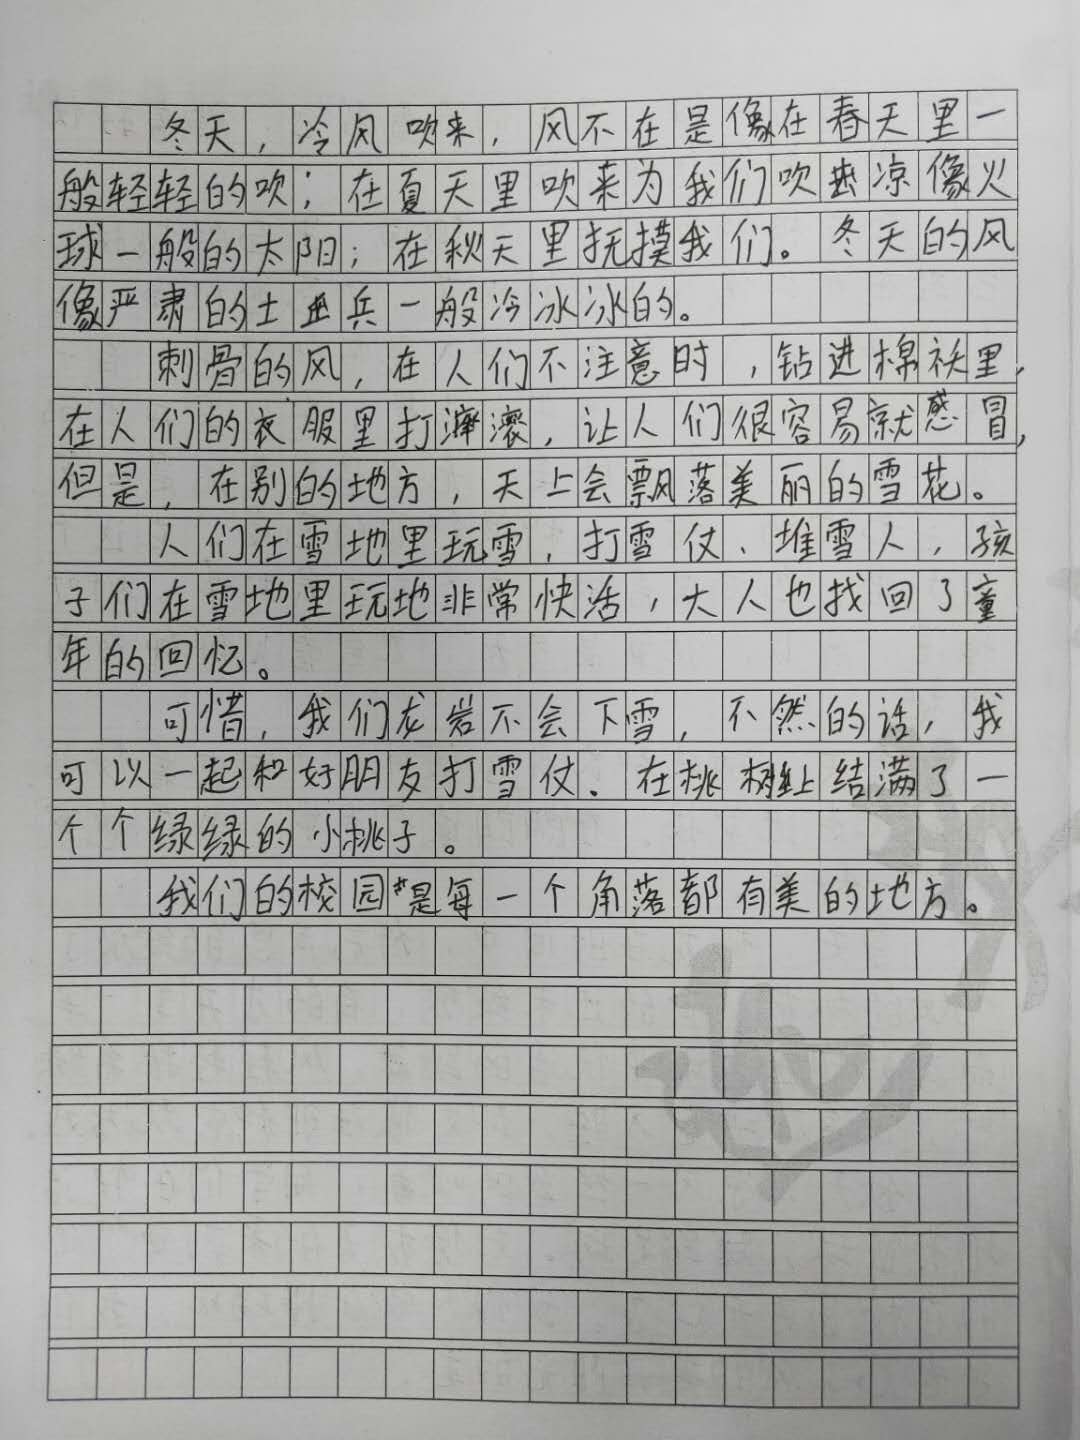 冬天，冷风吹来，风不在是像在春天里一
般轻轻的吹；在夏天里吹来为我们吹去凉像火
球一般的太阳；在秋天里抚摸我们。冬天的风
像严肃的士兵一般冷冰冰的。
刺骨的风，在人们不注意时，钻进棉袄里，
在人们的衣服里打滚，让人们很容易就感冒，
但是，在别的地方，天上会飘落美丽的雪花。
人们在雪地里玩雪，打雪仗、堆雪人，孩
子们在雪地里玩地非常快活，大人也找回了童
年的回忆。
可惜，我们龙岩不会下雪，不然的话，我
可以一起和好朋友打雪仗．在桃树上结满了一
个个绿绿的小桃子。
我们的校园是每一个角落都有美的地方。